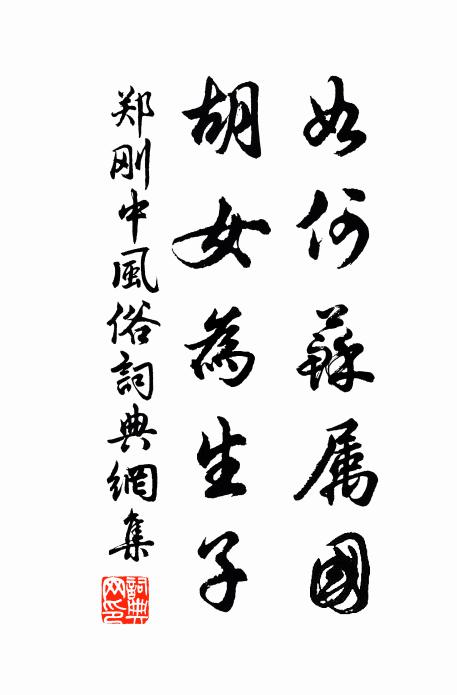 如何蘇属國
胡女為生子
郑刚中風俗詞典網集
詞典網印